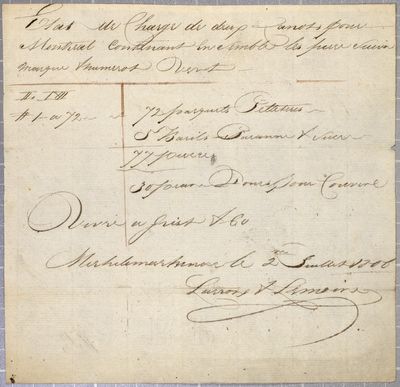 Etat de Charge de deux Canots pour
Montreal Contenant Ensemble les piece Suiva
marque & numerot
# 1 a 72 72 paquets Pelteries
5 Barils & Sucre
77 pieces
30 peaux Dours pour Couvrire
a Grist & Co
Michilimackinac le 2 Juillet 1806